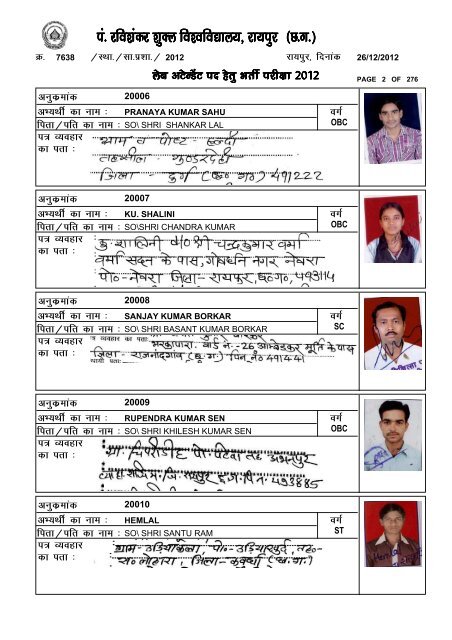 पं. रविशंकर शुक्ल विश्वविद्यालय, रायपुर (छ.ग.)
क्र. 7638 /स्था./सा.प्रशा./ 2012 रायपुर, दिनांक 26/12/2012
लेब अटेन्डेंट पद हेतु भर्ती परीक्षा 2012
PAGE 2 OF 276
अनुकमांक 20006
अभ्यर्थी का नाम : PRANAYA KUMAR SAHU वर्ग
पिता/पति का नाम : SO\ SHRI SHANKAR LAL OBC
पत्र व्यवहार ग्राम व पोस्ट-
का पता : तहसील गुण्डरदेही
जिला - दुर्ग (छ० ग०) 491222
अनुकमांक 20007
अभ्यर्थी का नाम : KU. SHALINI वर्ग
पिता/पति का नाम : SO\SHRI CHANDRA KUMAR OBC
पत्र व्यवहार कु. शालिनी d/o श्री चन्द्रकुमार वर्मा
का पता : वर्मा सदन के पास, गोबर्धन नगर नेवरा
पो०-नेवरा जिला-रायपुर, छ०ग०, 493114
अनुकमांक 20008
अभ्यर्थी का नाम : SANJAY KUMAR BORKAR वर्ग
पिता/पति का नाम : SO\ SHRI BASANT KUMAR BORKAR SC
पत्र व्यवहार वार्ड नं.-26 आम्बेडकर मूर्ति के पास
का पता : जिला - राजनांदगांव (छ.ग.) पिन नं० 491441
अनुकमांक 20009
अभ्यर्थी का नाम : RUPENDRA KUMAR SEN वर्ग
पिता/पति का नाम : SO\ SHRI KHILESH KUMAR SEN OBC
पत्र व्यवहार ग्रा. पो. तह अभनपुर
का पता : जि. रायपुर छ.ग. पिन. 493885
अनुकमांक 20010
अभ्यर्थी का नाम : HEMLAL वर्ग
पिता/पति का नाम : SO\ SHRI SANTU RAM ST
पत्र व्यवहार ग्राम- पो०- तह०-
का पता : स० लोहारा, जिला-कवर्धा (छ.ग.)